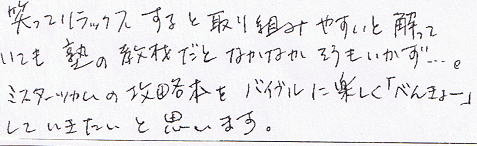 笑ってリラックスすると取り組みやすいと解って
いても塾の教材だとなかなかそうもいかず…。
ミスターツカムの攻略本をバイブルに楽しく「べんきょー」
していきたいと思います。